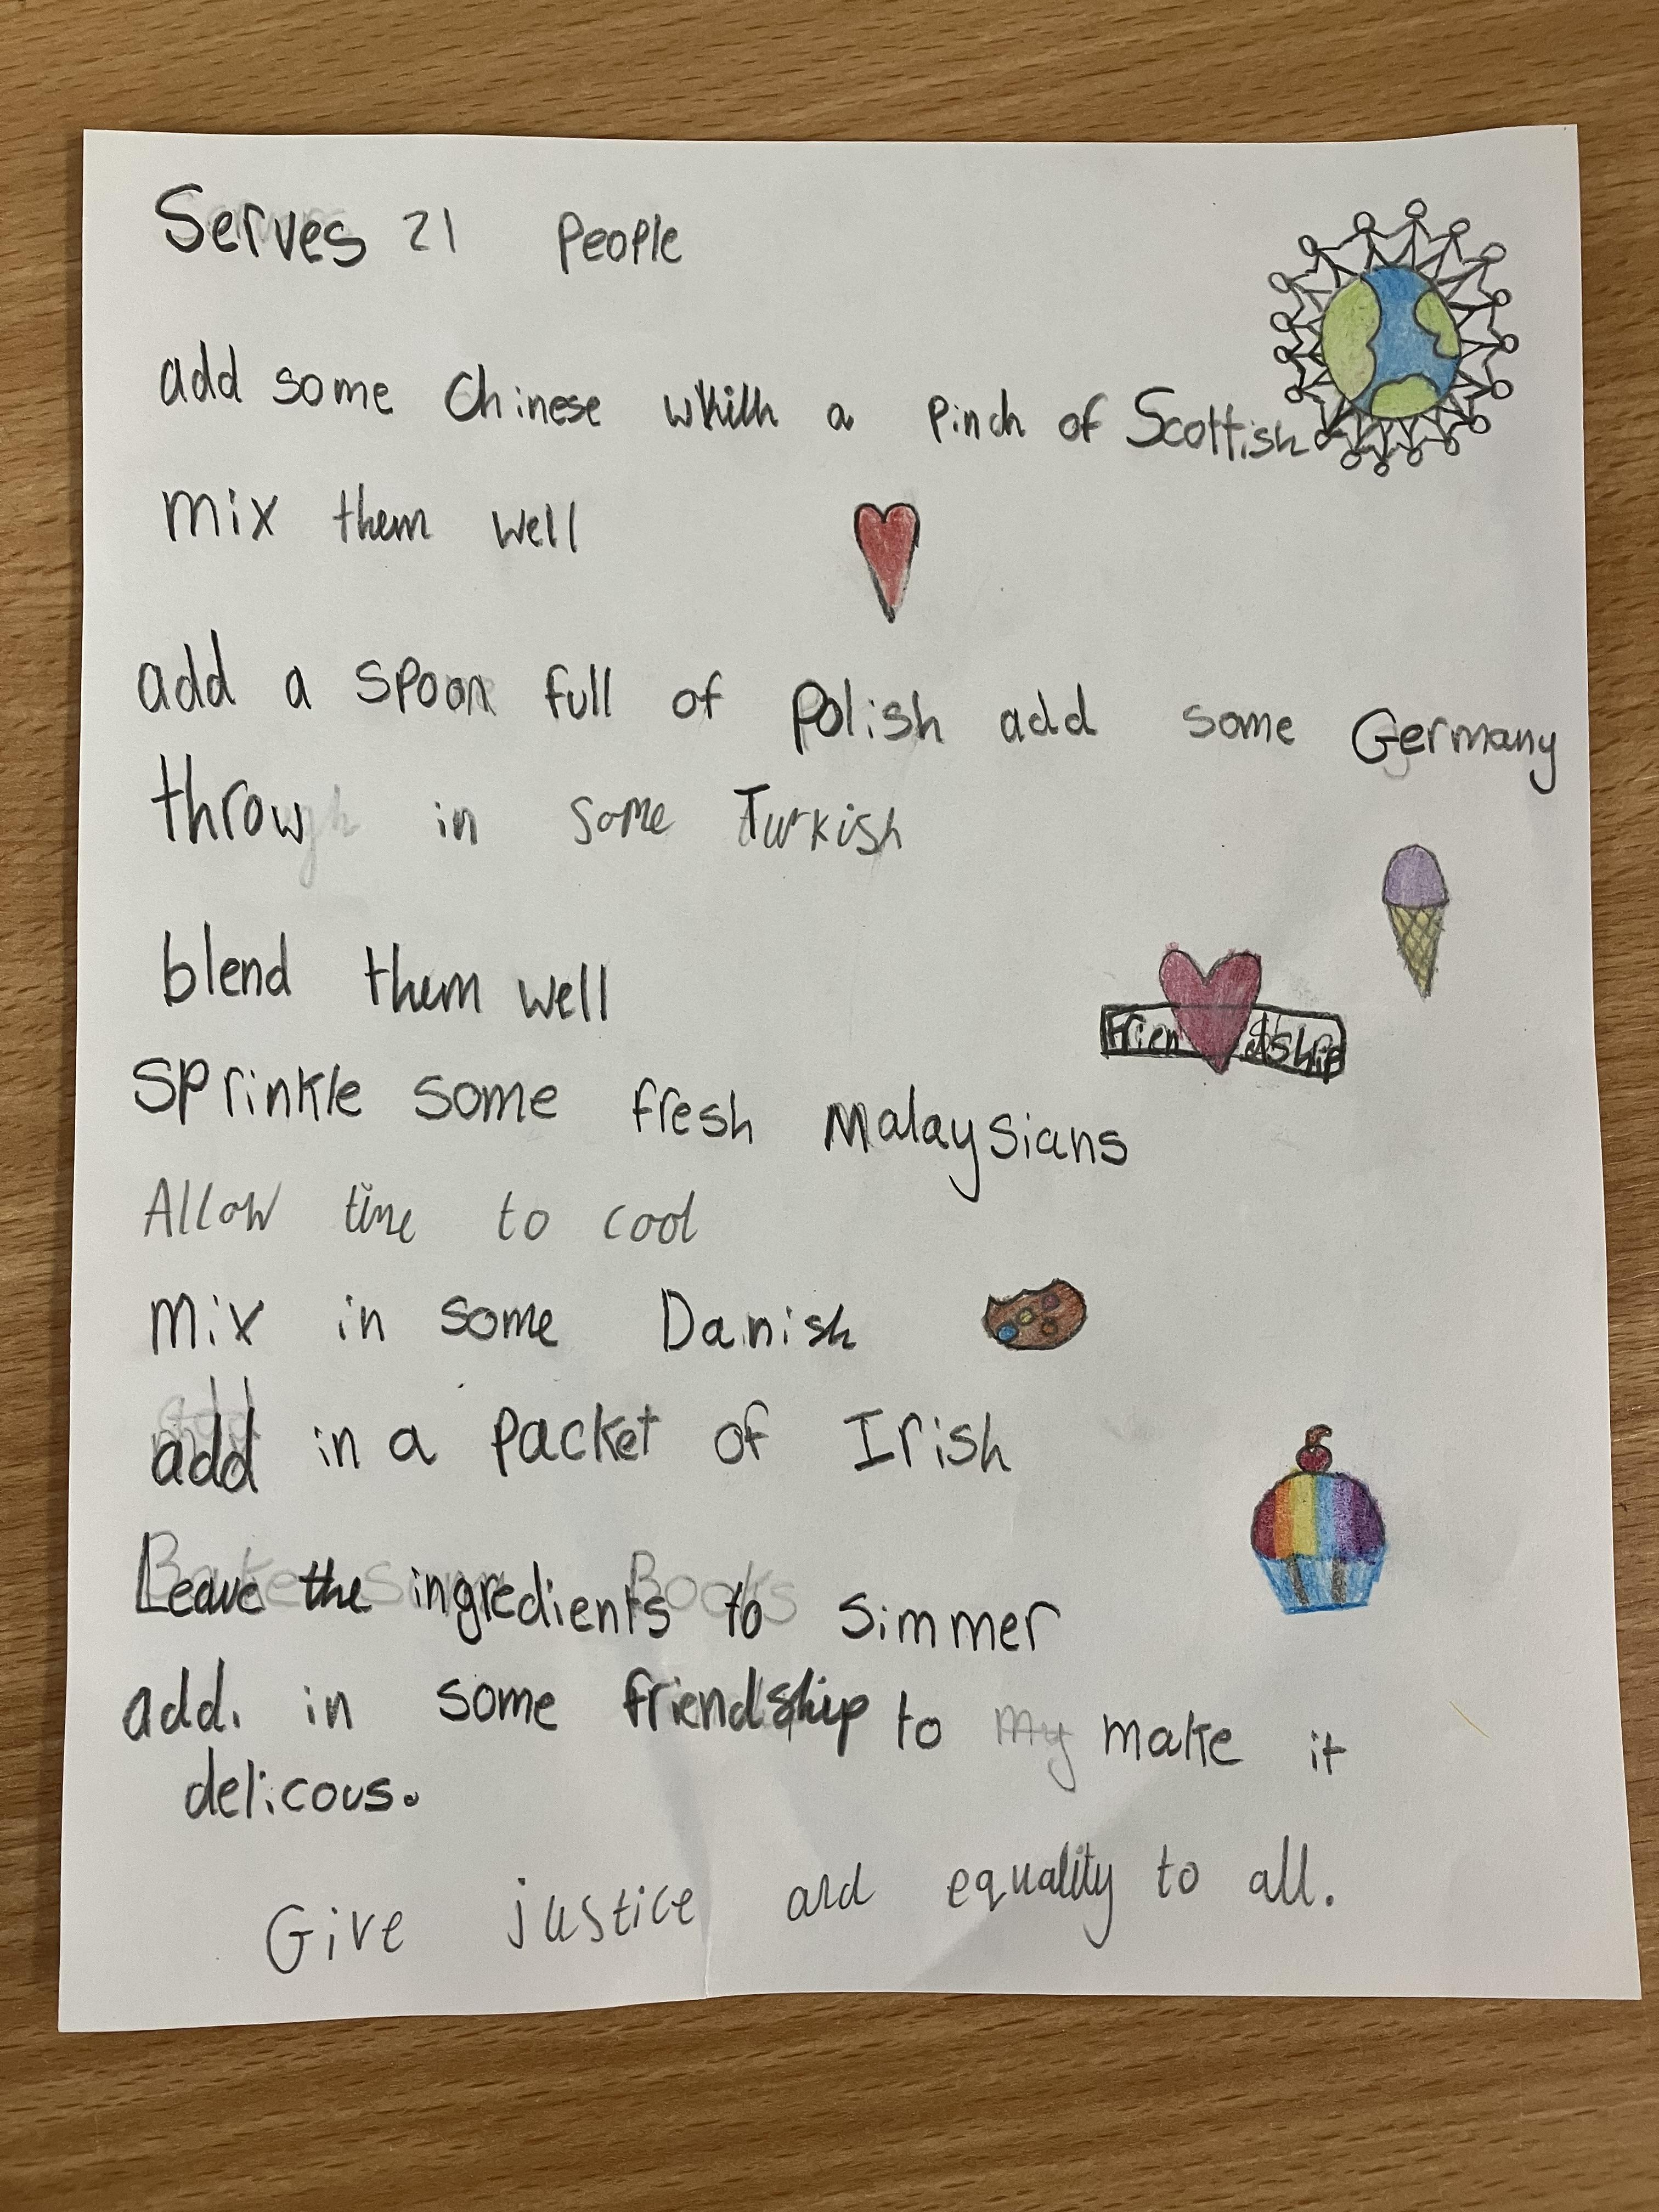 Serves 21 People
add some Chinese whith a Pinch of Scottish
mix them well
add a spoon full of Polish add some Germany
throw in some Turkish
blend them well
Friendship
Sprinkle some fresh Malaysians
Allow time to cool
Mix in some Danish
add in a packet of Irish
Leave the ingredients to simmer
add. in some friendship to my make it
delicous.
Give justice and equality to all.